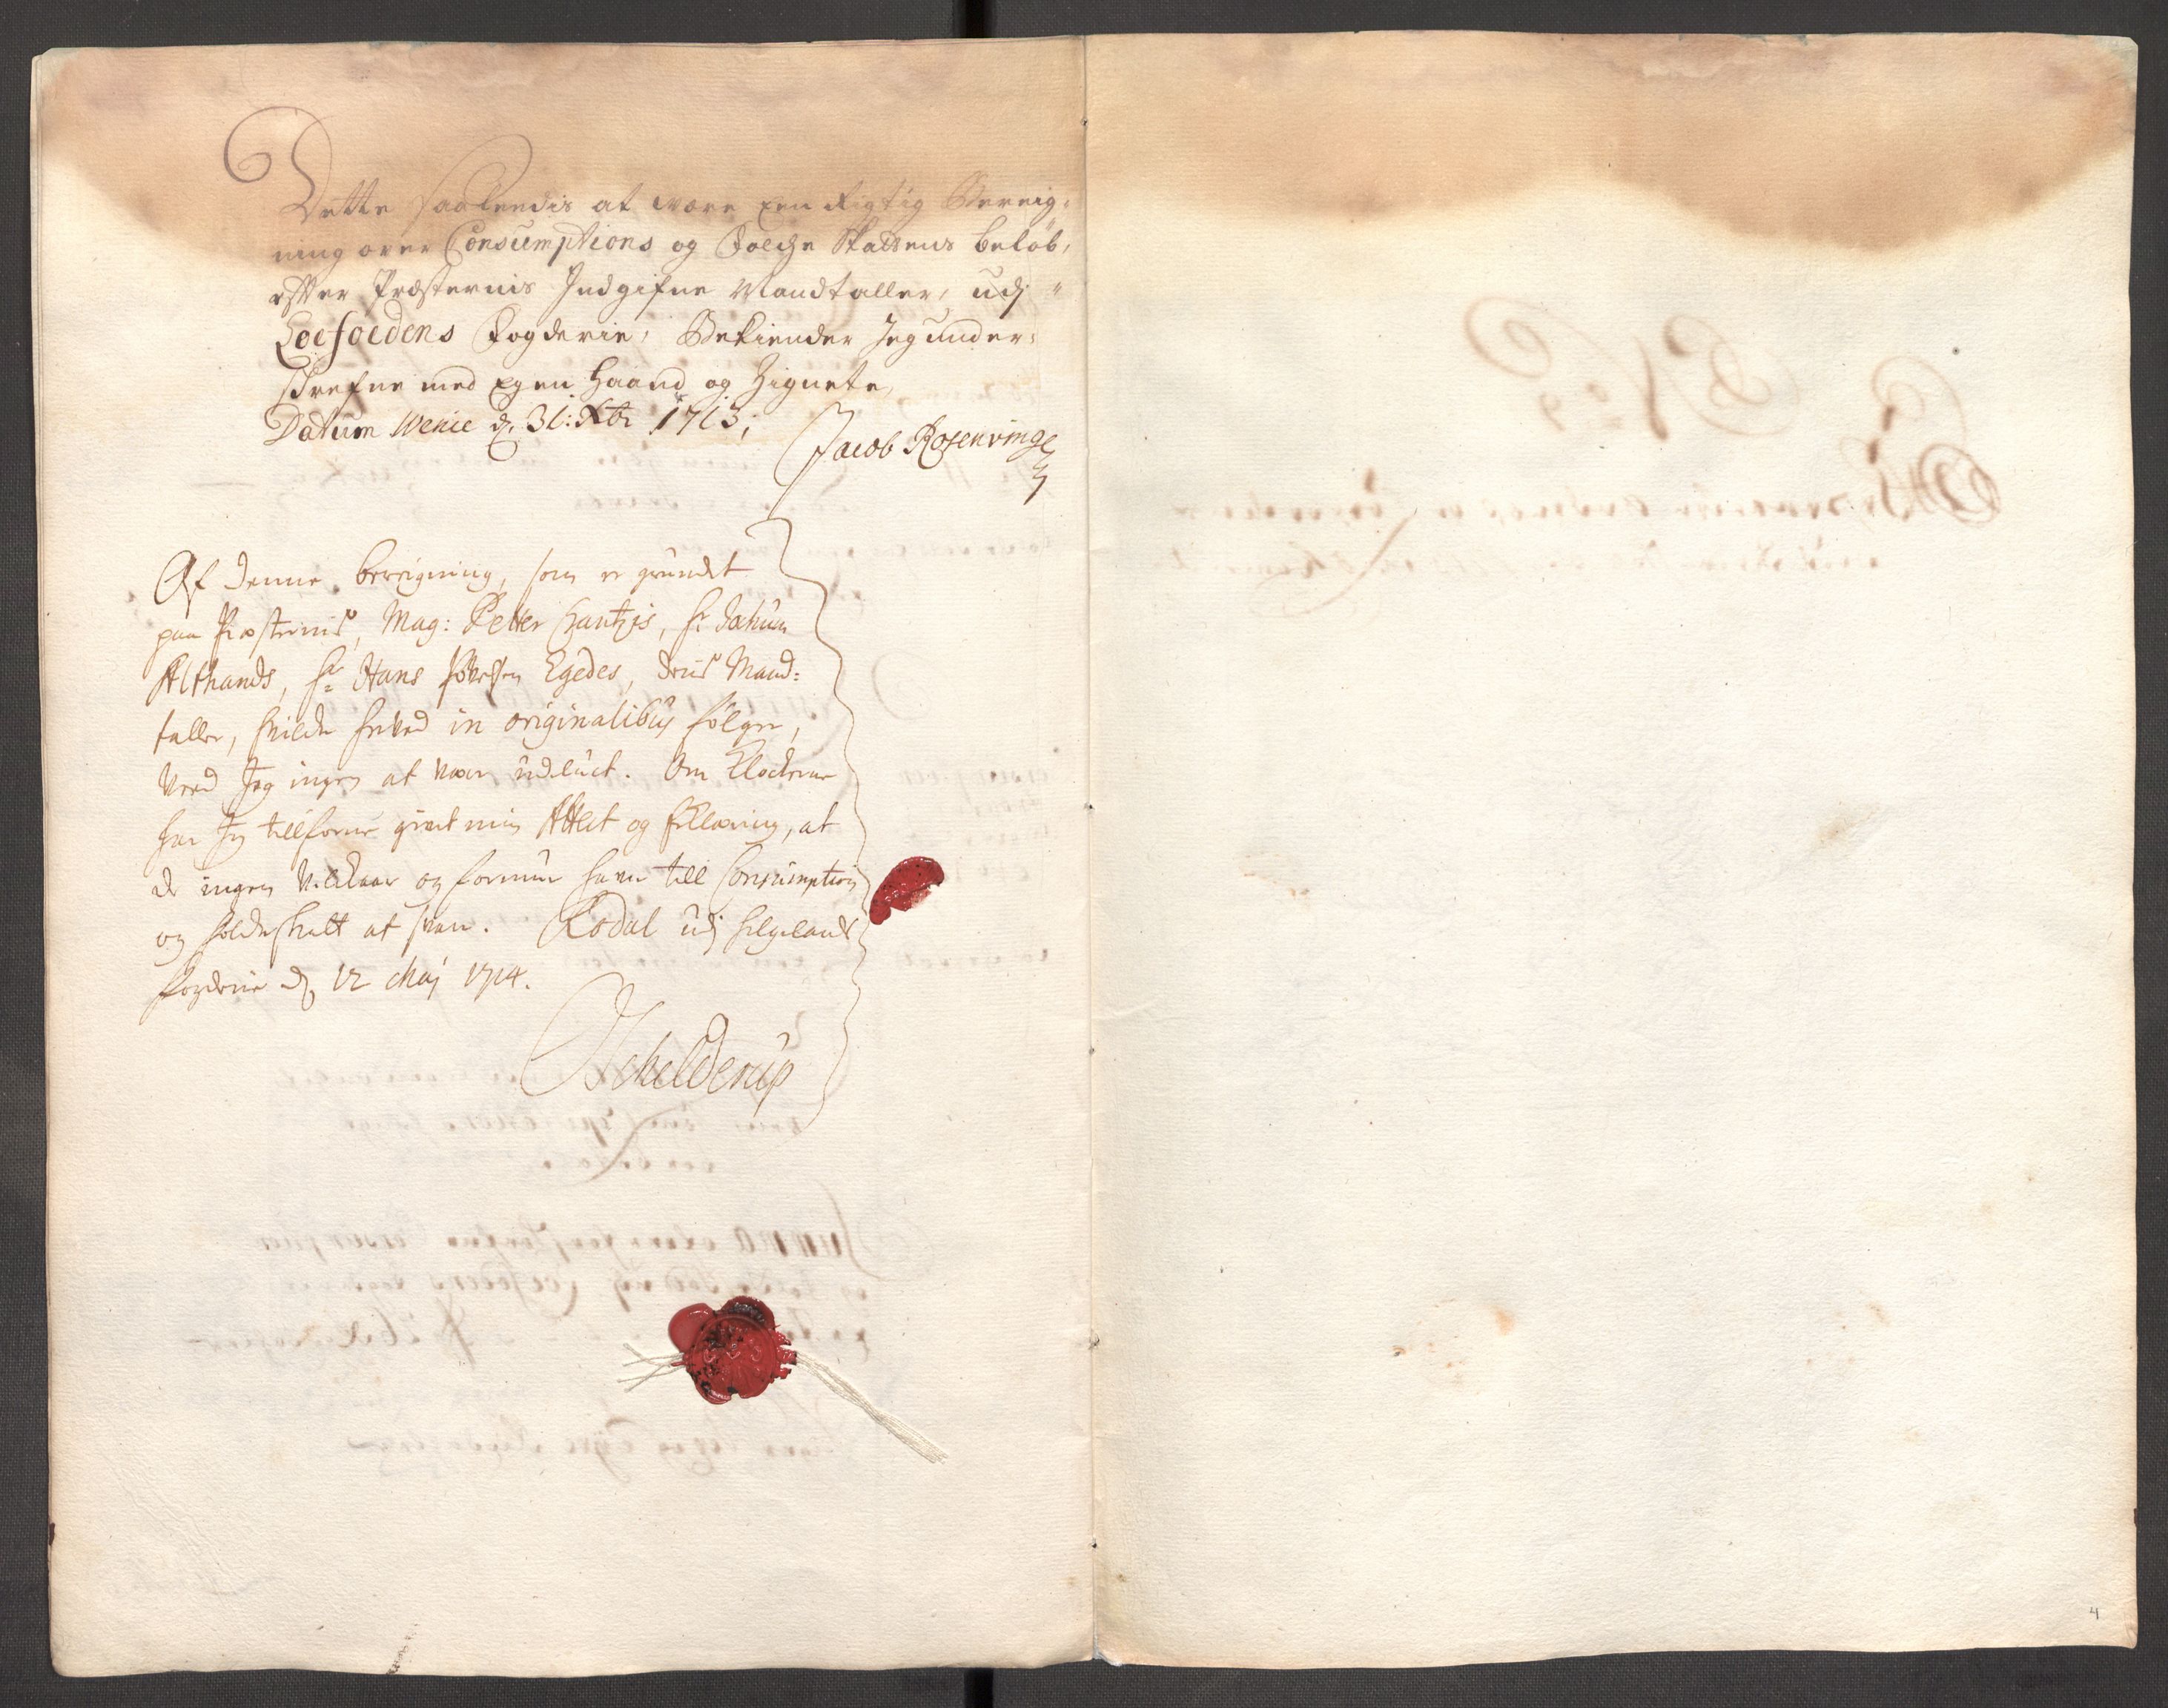 Dette saaleedis at være een Rigtig Bereig-
ning over Consumptions og Folche Skattens beløb,
efter Præsternis Indgifne Mandtaller, udj
Loefoedens Fogderie, Bekiender Jeg under-
schrefne med egen Haand og Zignete,
Datum Wenie d. 31: Xbr 1713;
Jacob Rosenvinge
Af denne beregning, som er grundet
paa Præsternis, Mag: Petter Hr
Althands, Hr Hans Egedes, deris Mand:
taller, hvilche herved in originalibus følger,
veed Jeg ingen at være udeluct. Om Klocherne
har Jeg tillforne givet min Attest og Erklæring, at
de ingen Vilckaar og formue hafver till Consumption
og folcheskatt at svare. Rødal udj Helgelands
fogderie d. 12 Maj 1714.
Schelderup
4